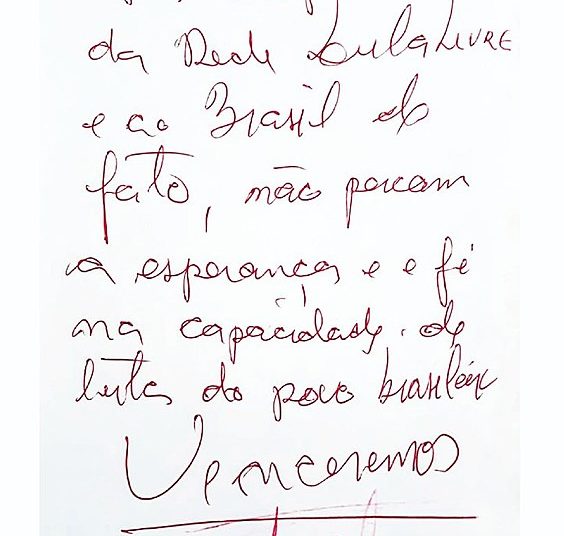 da Rede Lula LIVRE
e ao Brasil do
fato, não percam
a esperança e e fé
na capacidade de
luta do povo brasileiro
Venceremos